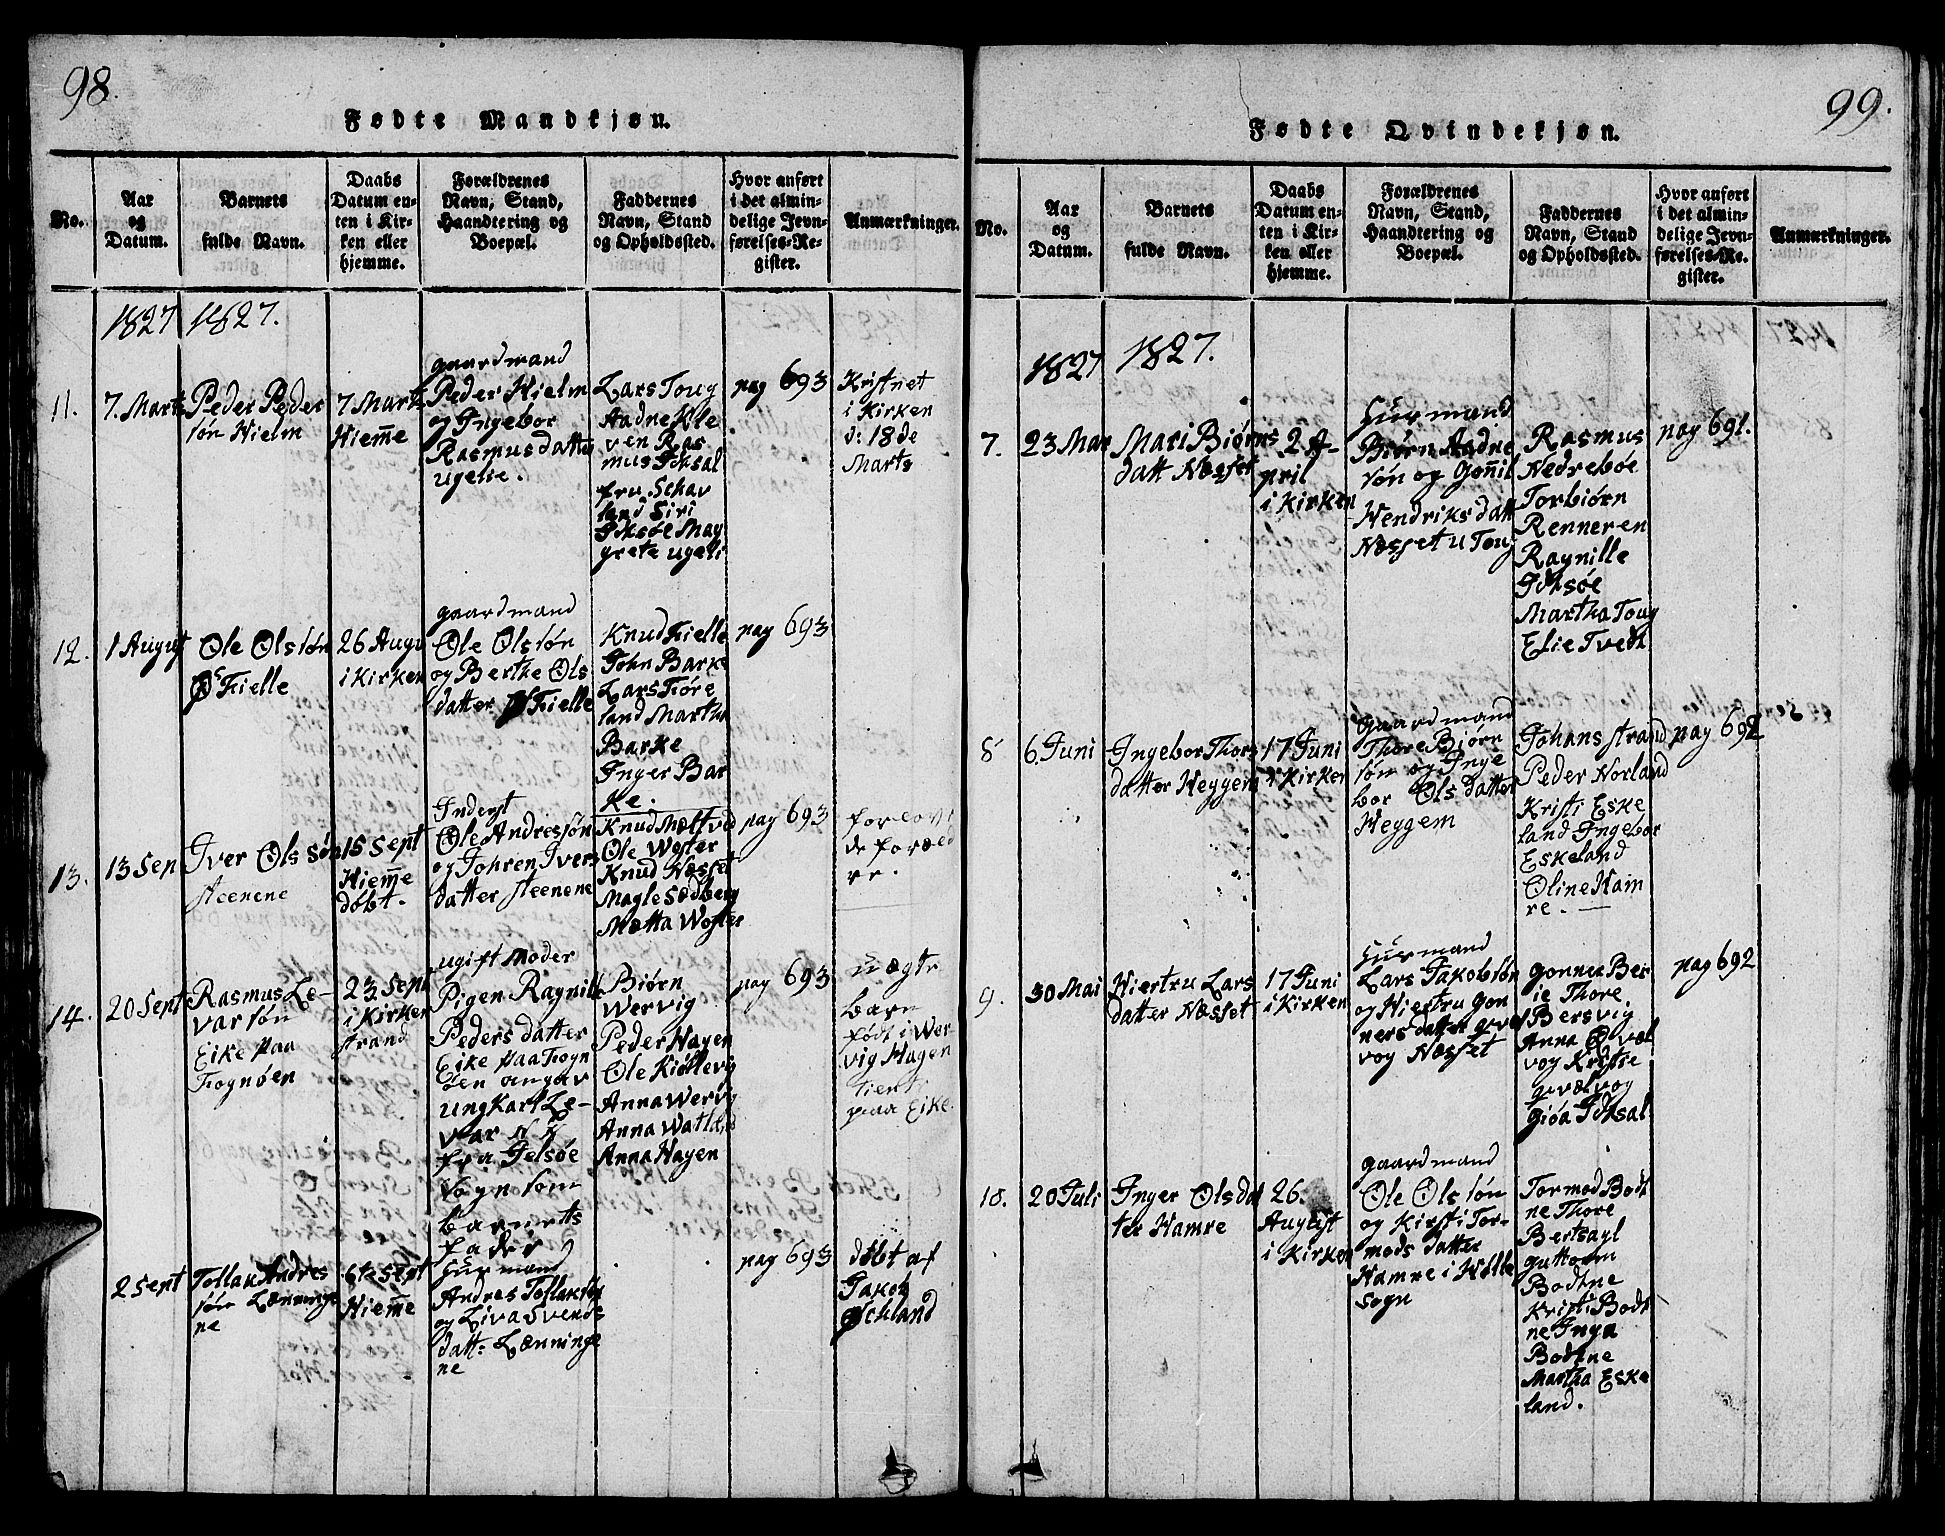 98.
Fødte Mandkjøn.
No.
Aar
og
Datum.
Barnets
fulde Navn.
Daabs
Datum en-
ten i Kir-
ken eller
hjemme.
Forældrenes
Navn, Stand,
Haandtering og
Boepæl.
Faddernes
Navn, Stand
og Opholdssted.
Hvor anført
i det almin-
delige Jevn-
førelses-Re-
gister.
Anmærkninger.
1827
1827.
11.
7. Marts
Peder Peder
søn Hielm
7 Marts
Hiem̄e
gaardmand
Peder Hielm
og Ingebor
Rasmusdatter
ugelie.
Lars Toug
Aadne Kle
ven Ras
mus Idsal
fru Schav
land Siri
Idsøe Mag
grete ugeli
pag 693
Kristnet
i Kirken
d: 18de
Marts
12.
1 August
Ole Olssøn
Fielle
26 Augu
i Kirken
gaardmand
Ole Olssøn
og Berthe Ols
datter Fielle
Knud Fielle
John Barke
Lars Tiøre
land Martha
Barke
Inger Bar
ke.
pag 693
13.
13 Sep
Iver Olssøn
steenene
15 Sept
Hiem̄e
døbt.
Inderst
Ole Andressøn
og Johren Ivers
datter steenene
Knud Mæltved
Ole Woster
Knud Næsset
Magle Sædberg
Mætta Woster
pag 693
forlovt
de foræld
re.
14.
20 Sept
Rasmus Le-
varsøn
Eike paa
Fognøen
23 Sept
i Kirken
strand
ugift Moder
Pigen Ragnille
Peders datter
Eike paa Fogn
øen angav
ung Karl Le-
var N N
fra Jelsøe
Sogn som
barnets
fader
Biørn
Wervig
Peder Hagen
Ole Kiøllevig
Anna Wervig
Anna Watland
Anna Hagen
pag 693
uægte
barn
født i Wer-
vig Hagen
tient
paa Eike.
2 Sept
Tollak Andres
søn Lænninge
ne
6te Sept
Hiem̄e
Husmand
Andres Tollaksøn
og Liva Svends
datt: Lænninge
ne
pag 693
døbt af
Jakob
Øchland
99.
Fødte Qvindekjøn.
No.
Aar
og
Datum.
Barnets
fulde Navn.
Daabs
Datum en-
ten i Kir-
ken eller
hjemme.
Forældrenes
Navn, Stand,
Haandtering og
Boepæl.
Faddernes
Navn, Stand
og Opholdssted.
Hvor anført
i det almin-
delige Jevn-
førelses-Re-
gister.
Anmærkninger.
1827
1827.
7.
23 Mar
Mari Biørns
datt Næsset
2 A-
pril
i Kirken
Husmand
Biørn Aadne
søn og Gon̄il
Hendriksdatt
Næsset u Toug
Rasmus
Nedrebøe
Torbiørn
Renneren
Ragnille
Idsøe
Martha Toug
Elie Tvedt
pag 691.
8
6 Juni
Ingebor Thors
datter Heggem
17 Juni
i Kirken
gaardmand
Thore Biørn
søn og Inge
bor Olsdatter
Heggem
Johans strand
Peder Norland
Kristi Eske
land Ingebor
Eskeland
Oline Ham
re.
pag 692
9.
30 Mai
Hiertru Lars
datter Næsset
17 Juni
i Kirken
Husmand
Lars Jakobsøn
og Hiertru Gon
ners datter qvæl
vog Næsset
gonner Ber
ie Thore
Bersvig
Anna Qvæl
vog Kristie
qvælvog
giøa Idsal
pag 692
10.
20 Juli
Inger Olsdat
ter Hamre
26.
August
i Kirken
gaardmand
Ole Olssøn
og Kirsti Tor-
mods datter
Hamre i Hølle
sogn
Tormod Bodt
ne Thore
Bertsagl
guttorm
Bodtne
Kristi Bodt
ne Inga
Bodtne
Martha Eske
land.